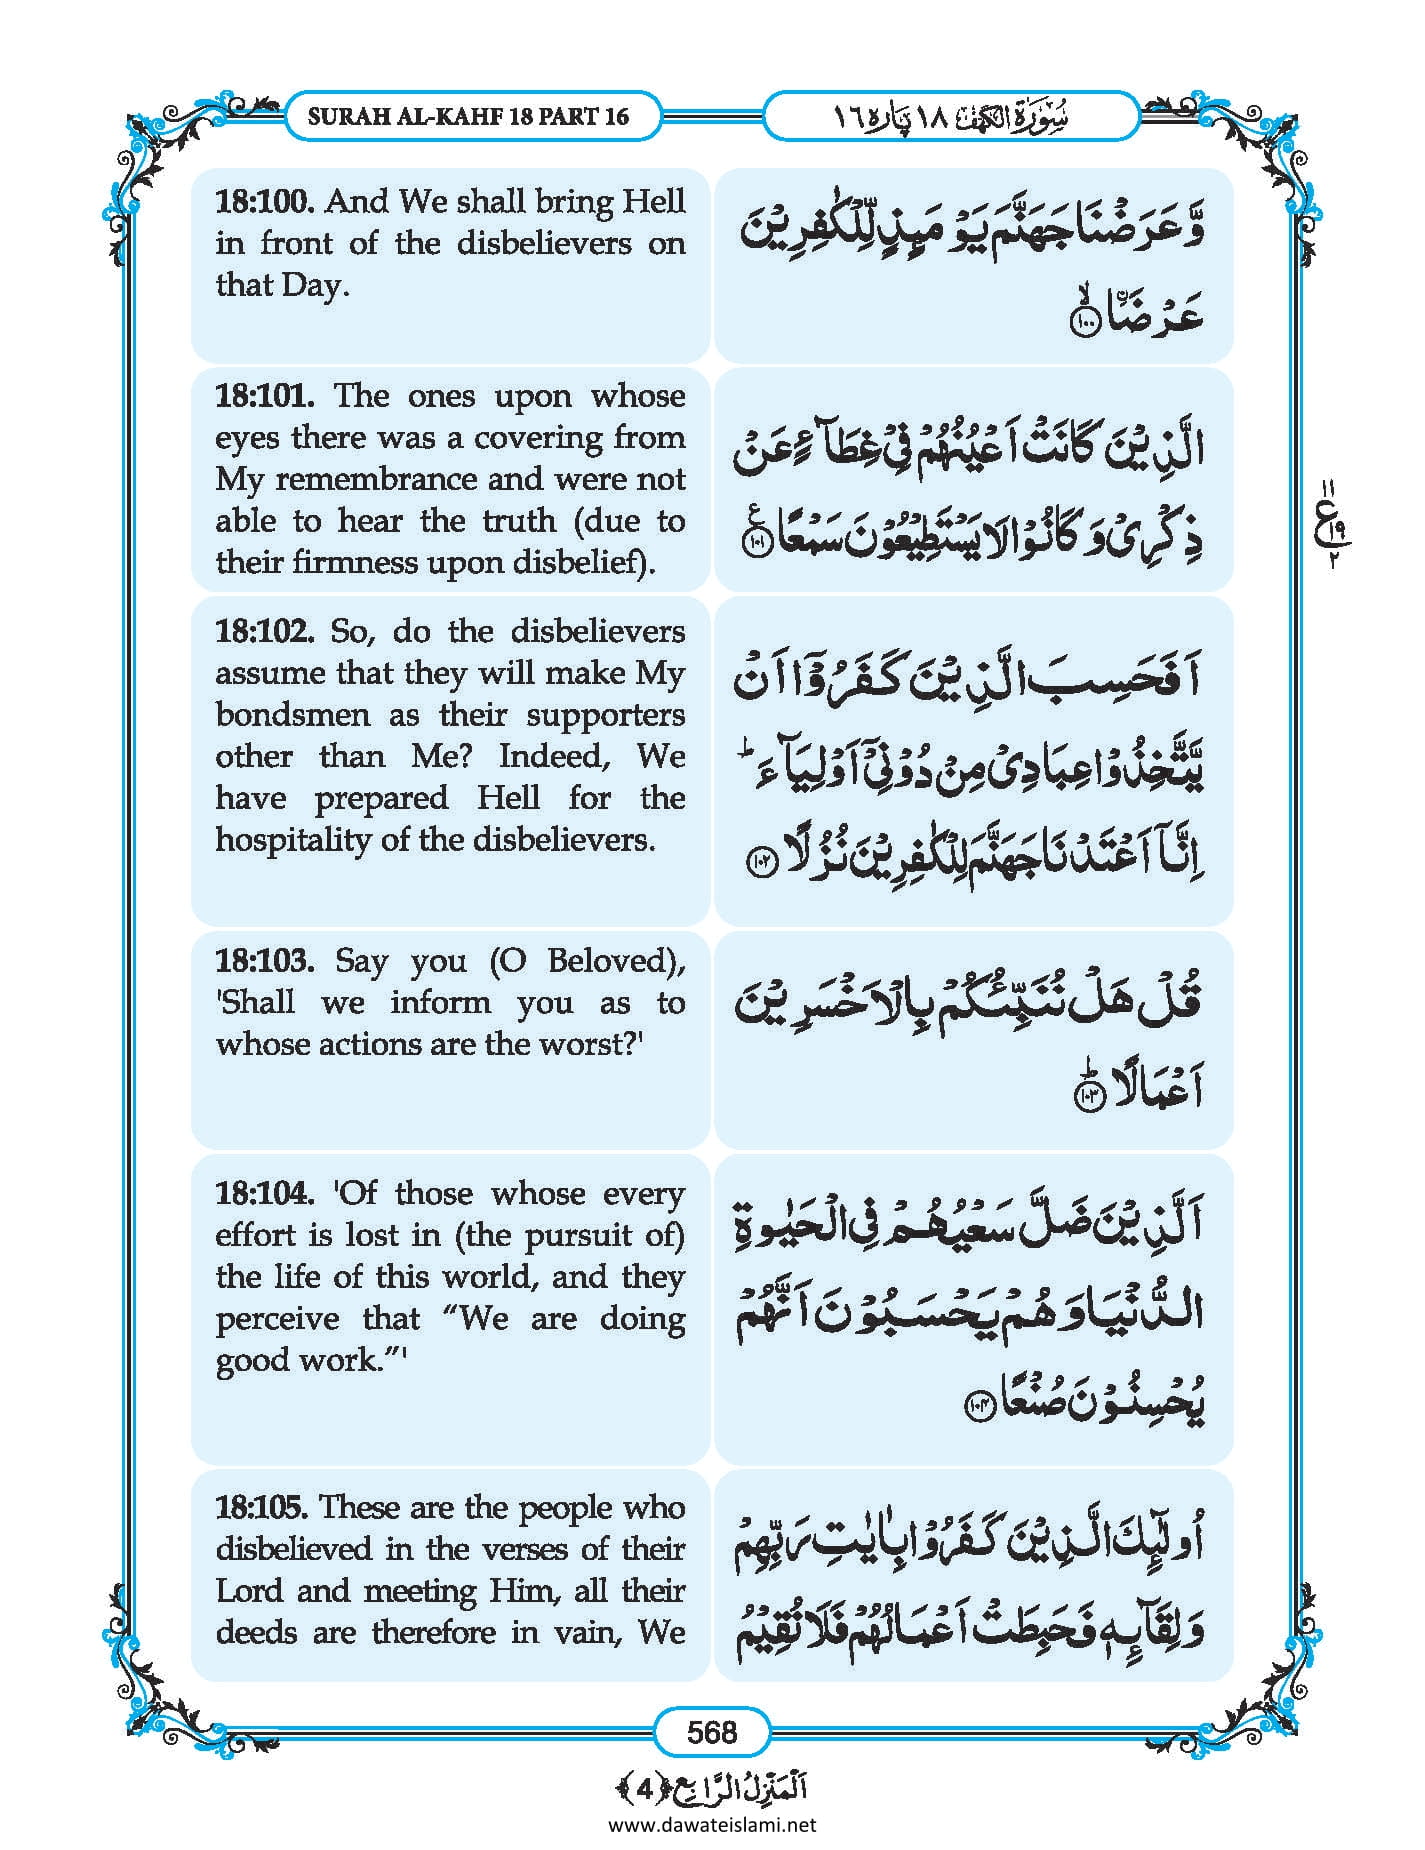 SURAH AL-KAHF 18 PART 16
سُوْرَةُ الْكَهْف ١٨ پَارہ ١٦
18:100. And We shall bring Hell
in front of the disbelievers on
that Day.
وَّ عَرَضْنَا جَهَنَّمَ یَوْمَىٕذٍ لِّلْكٰفِرِیْنَ
عَرْضَاۙﰳ ﴿۱۰۰﴾
18:101. The ones upon whose
eyes there was a covering from
My remembrance and were not
able to hear the truth (due to
their firmness upon disbelief).
الَّذِیْنَ كَانَتْ اَعْیُنُهُمْ فِیْ غِطَآءٍ عَنْ
ذِكْرِیْ وَ كَانُوْا لَا یَسْتَطِیْعُوْنَ سَمْعًا ﴿۱۰۱﴾ ع
١١
ع ١٩
٢
18:102. So, do the disbelievers
assume that they will make My
bondsmen as their supporters
other than Me? Indeed, We
have prepared Hell for the
hospitality of the disbelievers.
اَفَحَسِبَ الَّذِیْنَ كَفَرُوْۤا اَنْ
یَّتَّخِذُوْا عِبَادِیْ مِنْ دُوْنِیْۤ اَوْلِیَآءَؕ
اِنَّاۤ اَعْتَدْنَا جَهَنَّمَ لِلْكٰفِرِیْنَ نُزُلًا ﴿۱۰۲﴾
18:103. Say you (O Beloved),
'Shall we inform you as to
whose actions are the worst?'
قُلْ هَلْ نُنَبِّئُكُمْ بِالْاَخْسَرِیْنَ
اَعْمَالًاؕ ﴿۱۰۳﴾
18:104. 'Of those whose every
effort is lost in (the pursuit of)
the life of this world, and they
perceive that “We are doing
good work.”'
اَلَّذِیْنَ ضَلَّ سَعْیُهُمْ فِی الْحَیٰوةِ
الدُّنْیَا وَ هُمْ یَحْسَبُوْنَ اَنَّهُمْ
یُحْسِنُوْنَ صُنْعًا ﴿۱۰۴﴾
18:105. These are the people who
disbelieved in the verses of their
Lord and meeting Him, all their
deeds are therefore in vain, We
اُولٰٓىٕكَ الَّذِیْنَ كَفَرُوْا بِاٰیٰتِ رَبِّهِمْ
وَ لِقَآىٕهٖ فَحَبِطَتْ اَعْمَالُهُمْ فَلَا نُقِیْمُ
568
اَلْمَنْزِلُ الرَّابِع ﴿4﴾
www.dawateislami.net